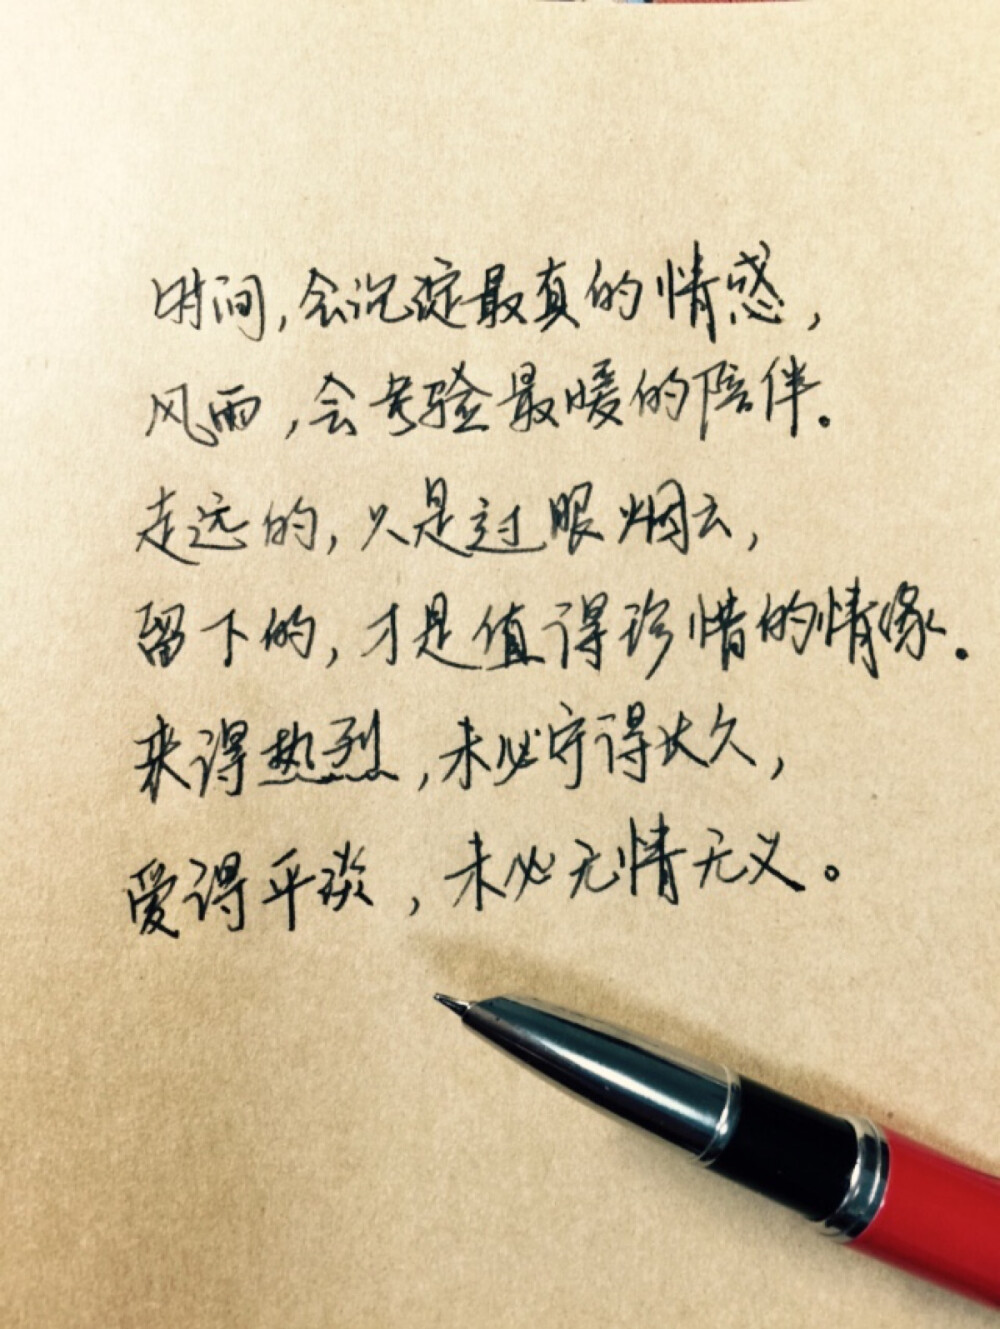 时间,会沉淀最真的情感,
风雨,会考验最暖的陪伴。
走远的,只是过眼烟云,
留下的,才是值得珍惜的情缘。
来得热烈,未必守得长久,
爱得平淡,未必无情无义。